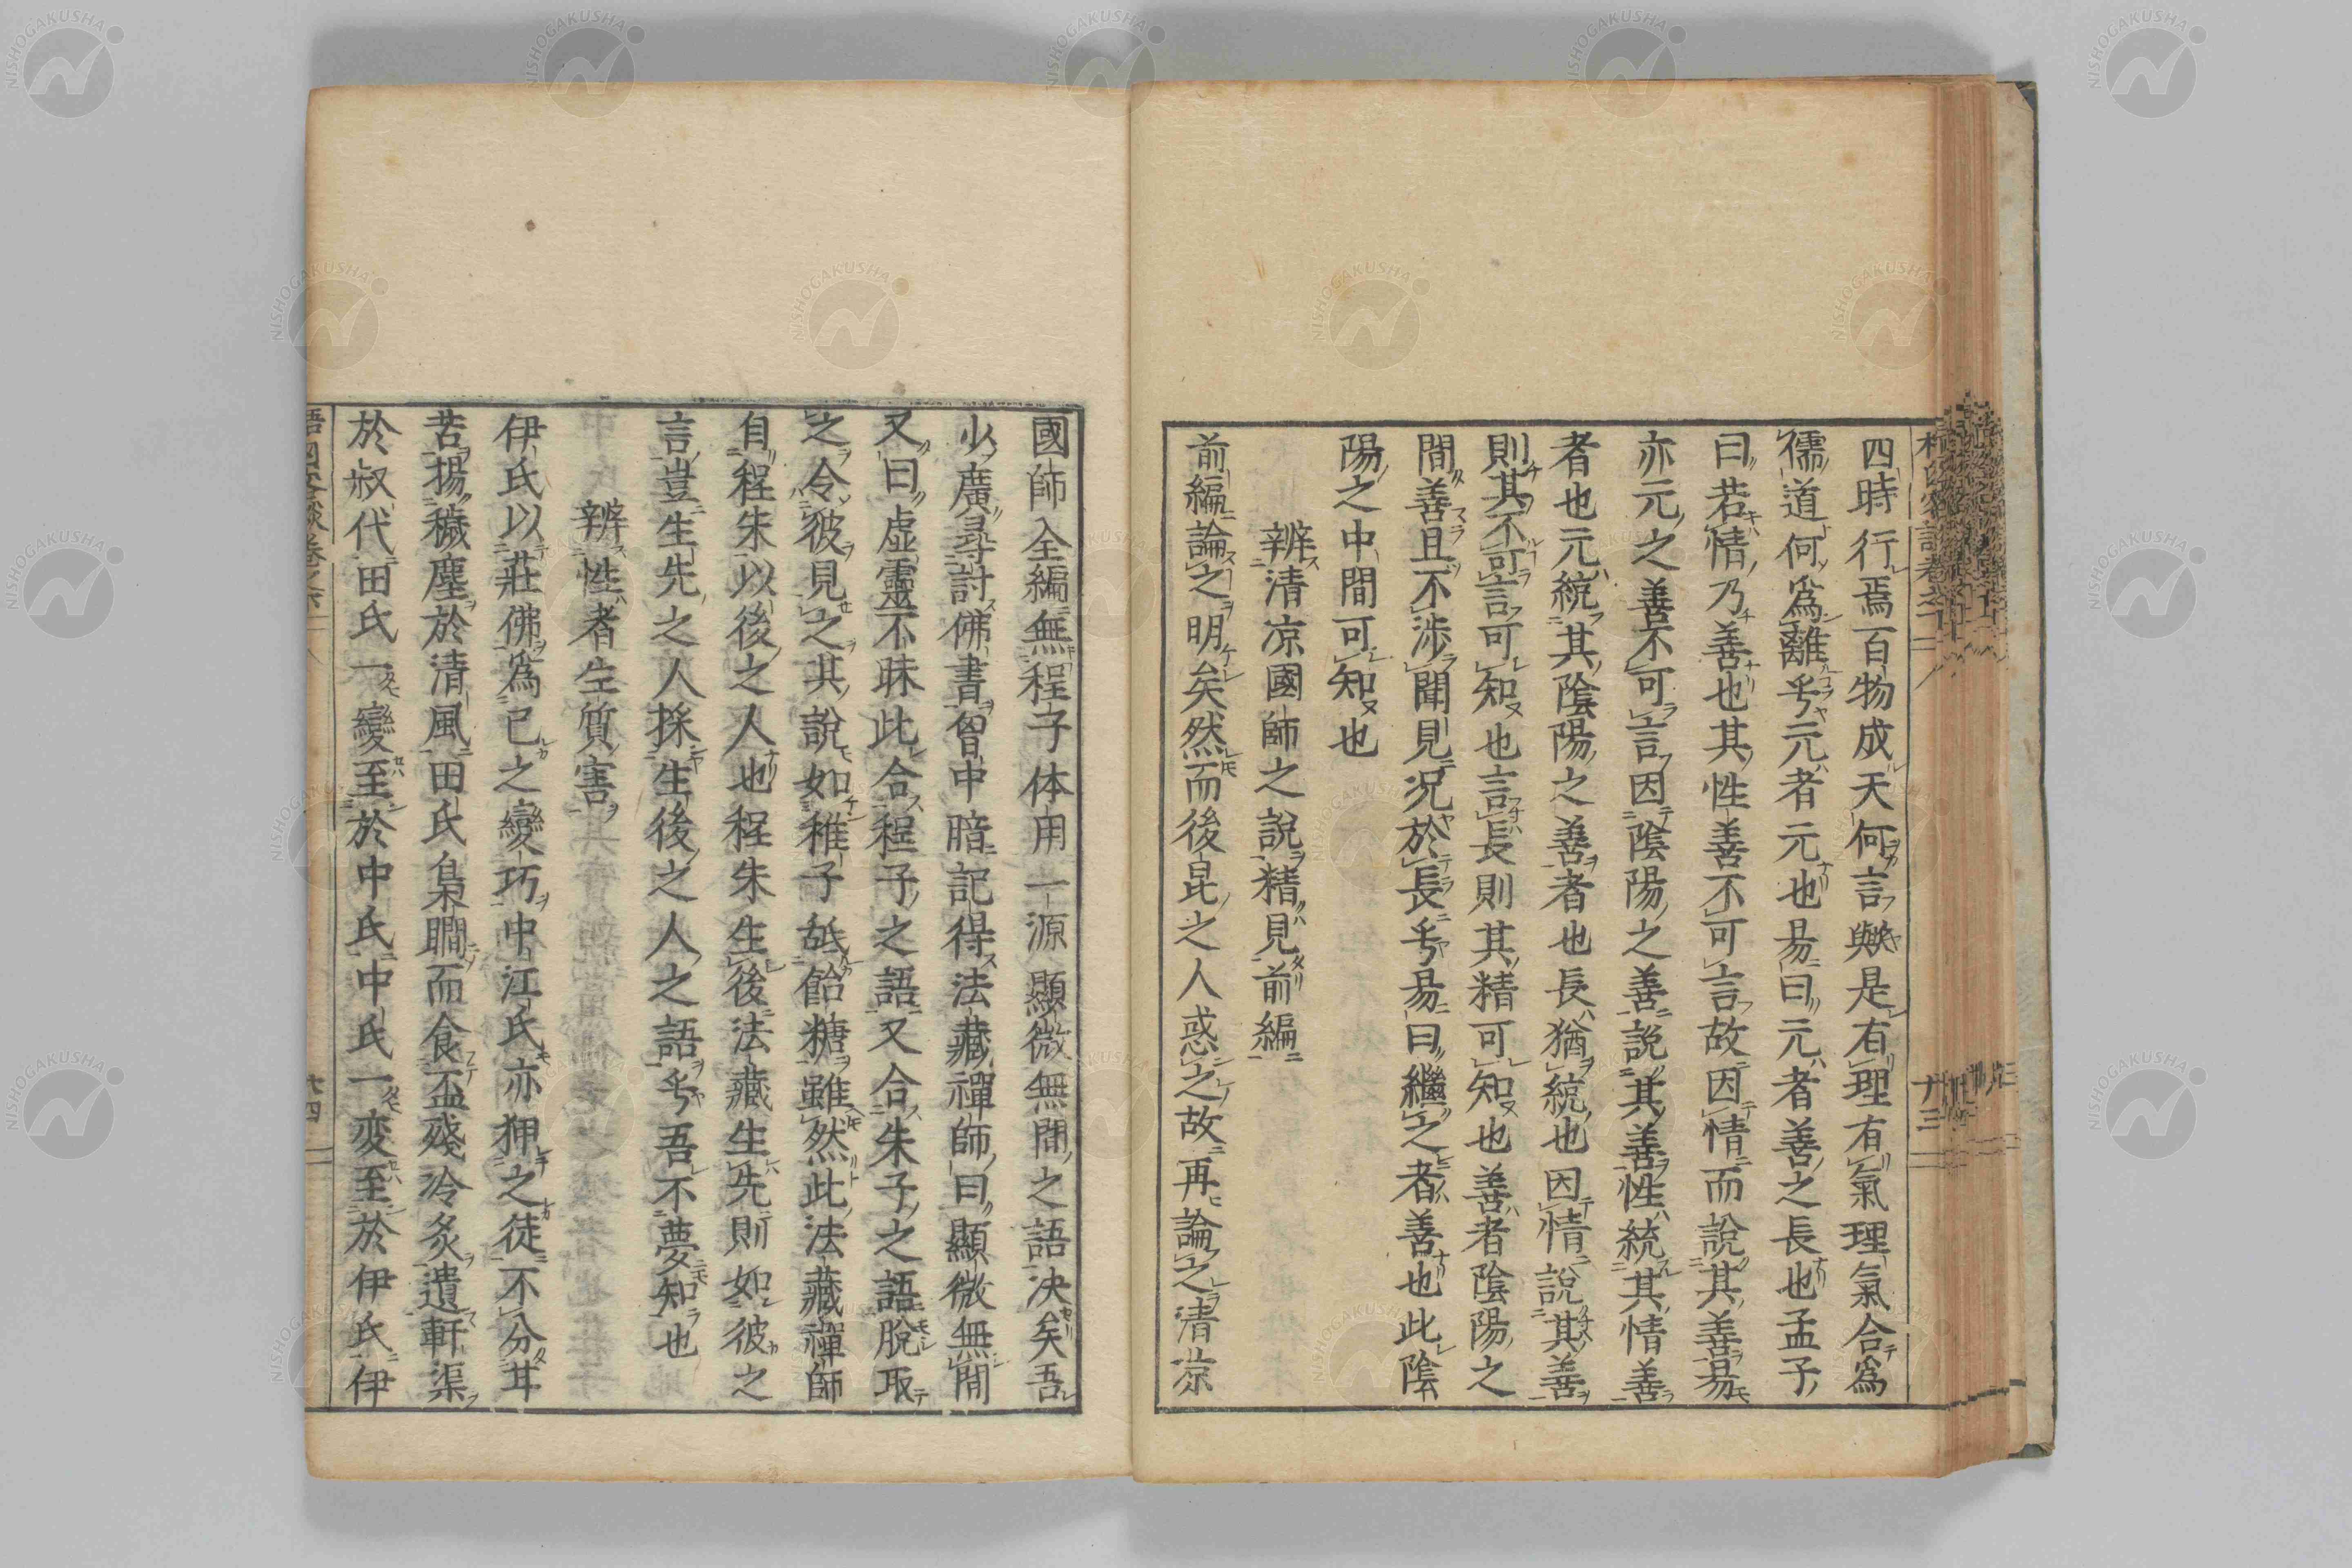 四時行焉百物成天何言歟是有理有氣理氣合爲
儒道何爲離乎元者元也易曰元者善之長也孟子
曰若情乃善也其性善不可言故因情而說其善易
亦元之善不可言因陰陽之善說其善性統其情善
者也元統其陰陽之善者也長猶統也因情說其善
則其不可言可知也言長則其精可知也善者陰陽之
間善且不渉聞見况於長乎易曰繼之者善也此陰
陽之中間可知也
辨清凉國師之說精見前編
前編論之明矣然而後昆之人惑之故再論之清凉
國師全編無程子体用一源顯微無間之語决矣吾
少廣尋討佛書曾中暗記得法藏禪師曰顯微無間
又曰虚靈不昧此合程子之語又合朱子之語脫取
之令彼見之其說如稚子舐飴糖雖然此法藏禪師
自程朱以後之人也程朱生後法藏生先則如彼之
言豈生先之人採生後之人之語乎吾不夢知也
辨性者生質害
伊氏以莊佛爲已之變巧中江氏亦狎之徒不分耳
苦揚穢塵於清風田氏梟瞷而食盃殘冷炙遺軒渠
於叔代田氏一變至於中氏中氏一変至於伊氏伊
NISHOGAKUSHA